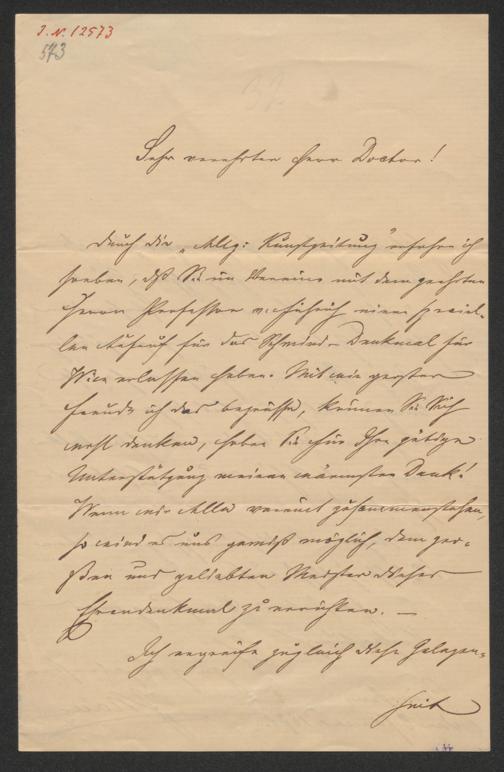 I. N. 12573
573
Sehr verehrter Herr Doctor!
Durch die „Allg: Kunstzeitung" erfahre ich
soeben, daß Sie im Vereine mit dem geehrten
Herrn Professor v. Führich einen speciel-
len Aufruf für das Schwind-Denkmal für
Wien erlassen haben. Mit wie großer
Freude ich das begrüsse, können Sie Sich
wohl denken, haben Sie für Ihre gütige
Unterstützung meinen wärmsten Dank!
Wenn wir Alle vereint zusammenstehen,
so wird es uns gewiß möglich, dem gro-
ßen und geliebten Meister dieses
Ehrendenkmal zu errichten. —
Ich ergreife zugleich diese Gelegen-
heit